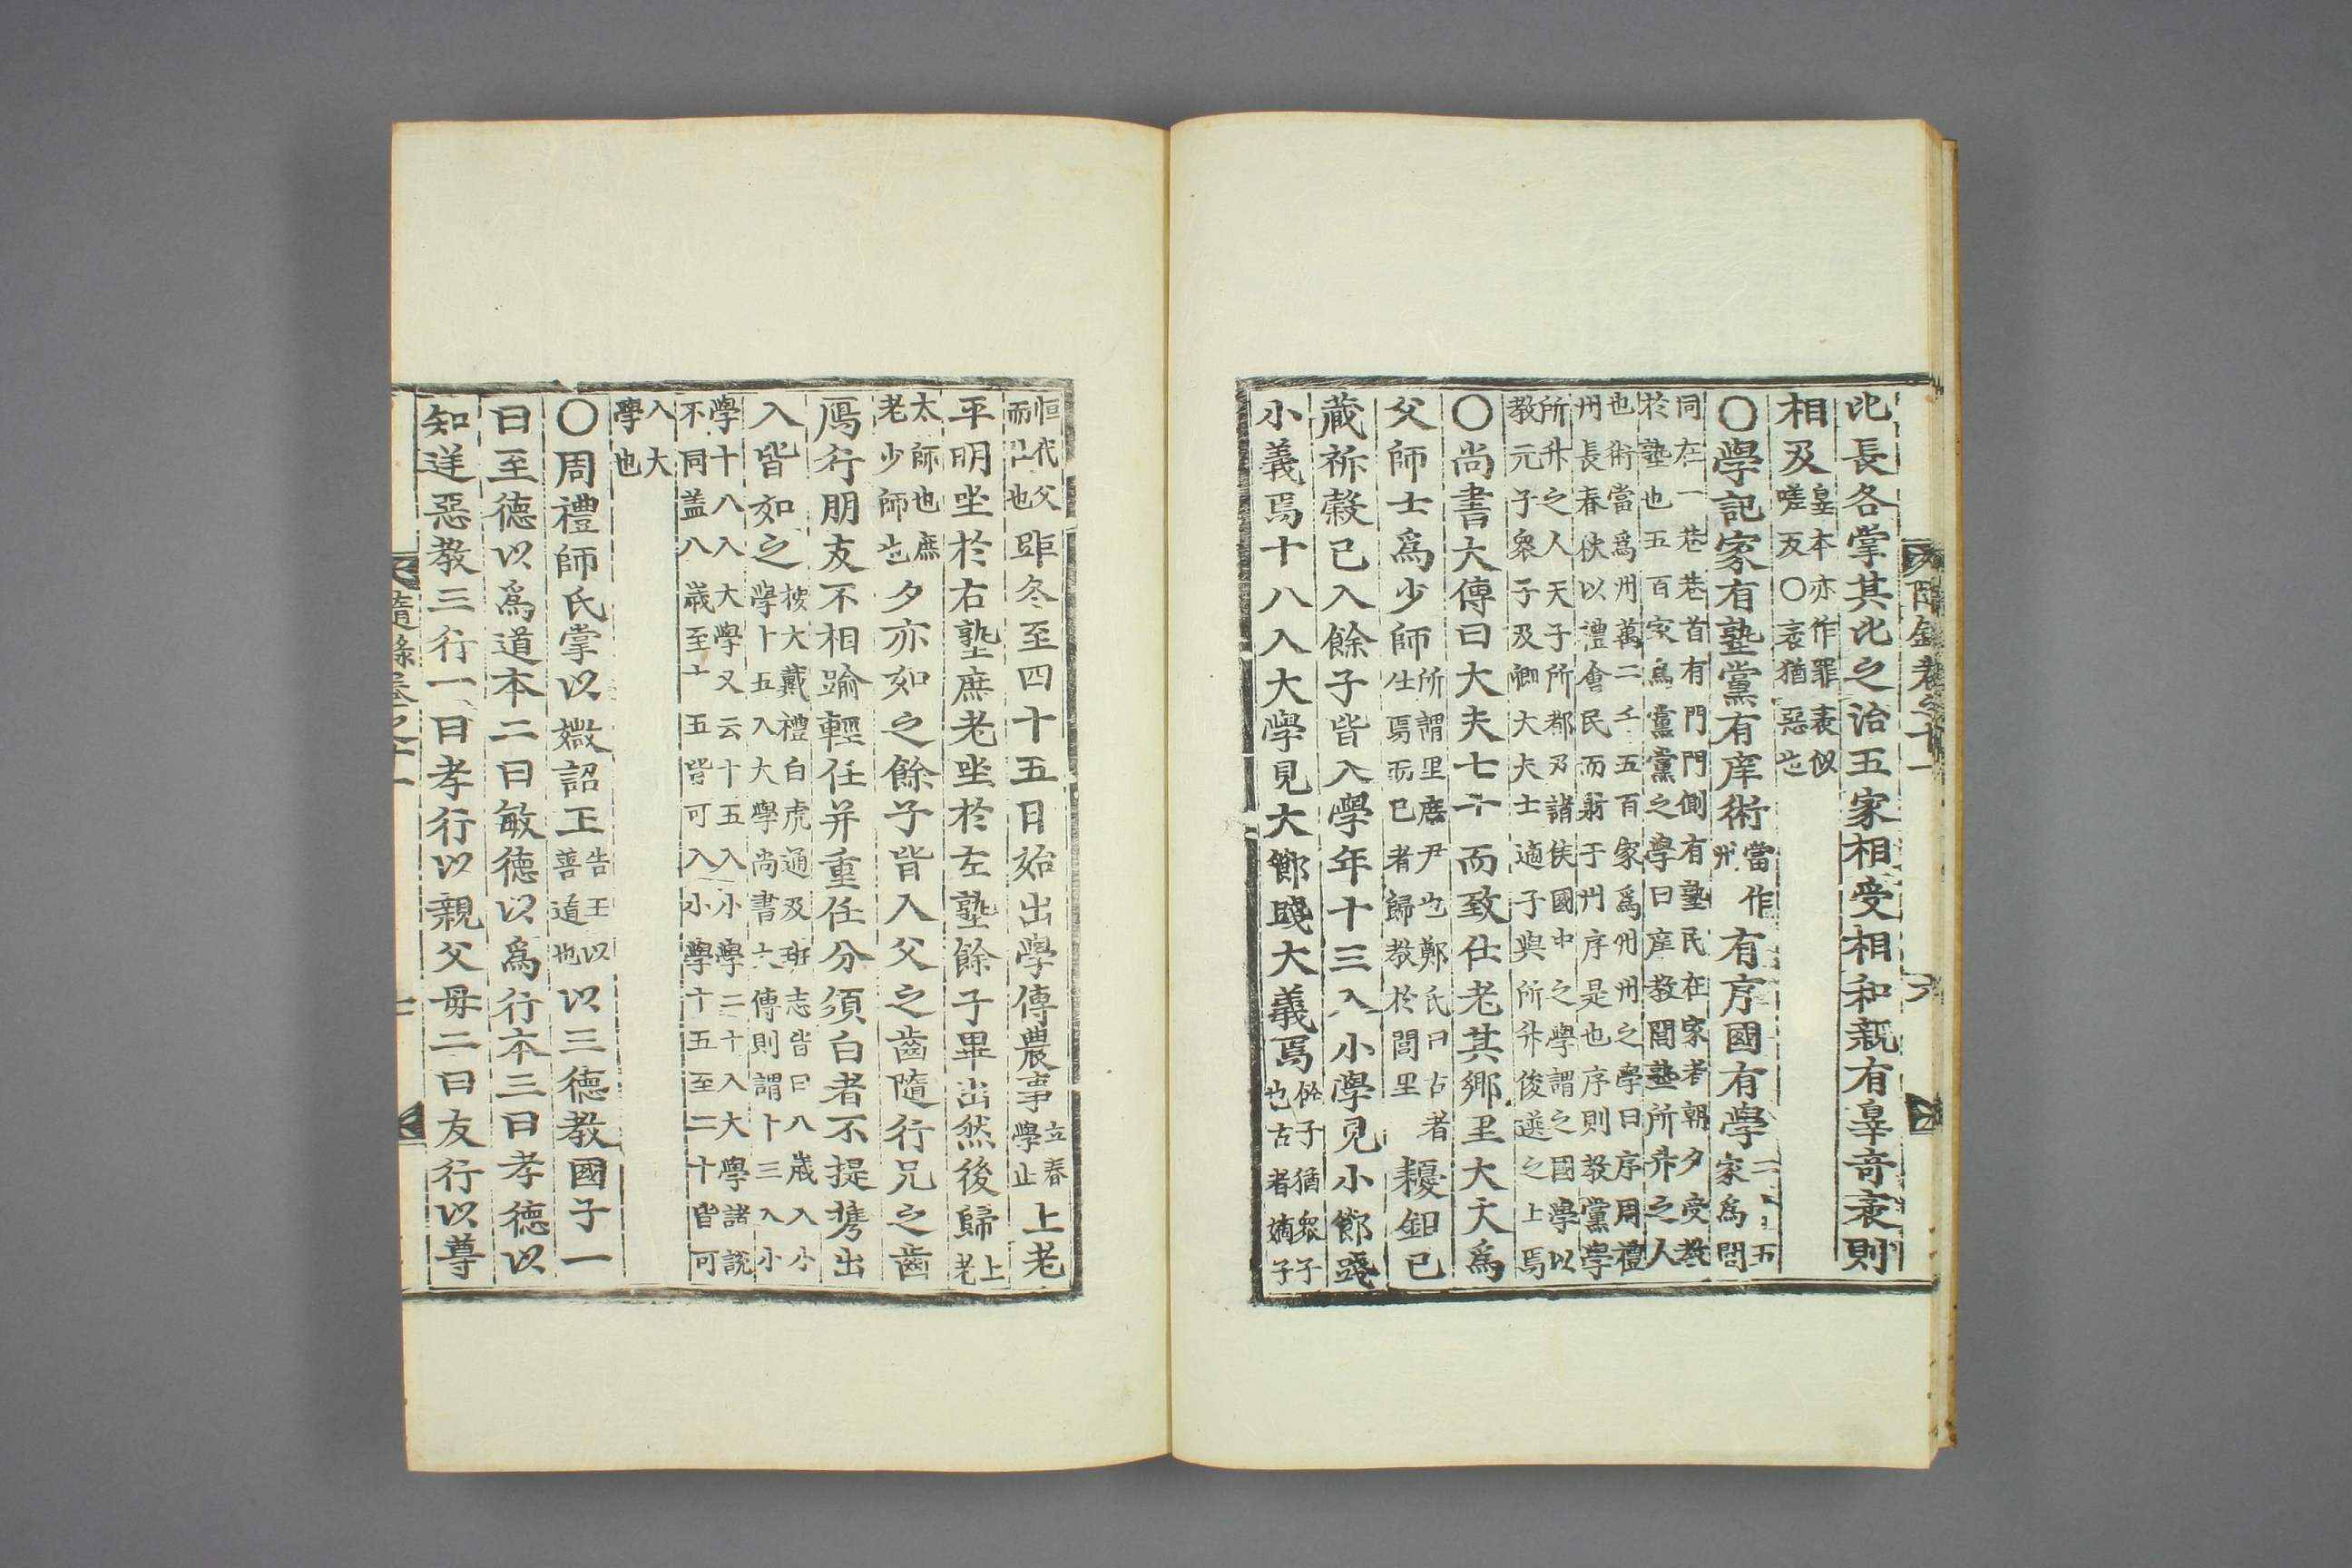 隨錄卷之十一 六
比長各掌其比之治五家相受相和親有辠竒衺則
相及
辠本亦作罪衺似
嗟反○衺猶惡也
○學記家有塾黨有庠術
當作
州
有序國有學
二十五
家爲閭
同在一巷巷首有門門側有塾民在家者朝夕受教
於塾也五百家爲黨黨之學曰庠教閭塾所升之人
也術當爲州萬二千五百家爲州州之學曰序周禮
州長春秋以禮會民而射于州序是也序則教黨學
所升之人天子所都及諸侯國中之學謂之國學以
教元子衆子及卿大夫士適子與所升俊選之士焉
○尚書大傳曰大夫七十而致仕老其鄉里大夫爲
父師士爲少師
所謂里庶尹也鄭氏曰古者
仕焉而已者歸教於閭里
耰鉏已
藏祈穀已入餘子皆入學年十三入小學見小節踐
小義焉十八入大學見大節踐大義焉
餘子猶衆子
也古者嫡子
恒代父
而仕也
距冬至四十五日始出學傳農事
立春
學止
上老
平明坐於右塾庶老坐於左塾餘子畢出然後歸
上
老
太師也庶
老少師也
夕亦如之餘子皆入父之齒隨行兄之齒
鴈行朋友不相踰輕任并重任分須白者不提携出
入皆如之
按大戴禮白虎通及班志皆曰八歲入小
學十五入大學尚書大傳則謂十三入小
學十八入大學又云十五入小學二十入大學諸說
不同盖八歲至十五皆可入小學十五至二十皆可
入大
學也
○周禮師氏掌以媺詔王
告王以
善道也
以三德教國子一
曰至德以爲道本二曰敏德以爲行本三曰孝德以
知逆惡教三行一曰孝行以親父母二曰友行以尊
隨錄卷之十一 七